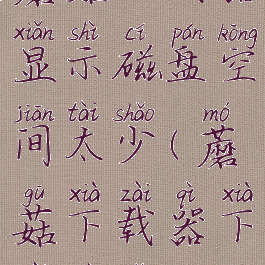 xiǎn shì cí pán kōng
显示磁盘空
jiān tài shǎo mó
间太少(蘑
gū xià zài qì xià
菇下载器下